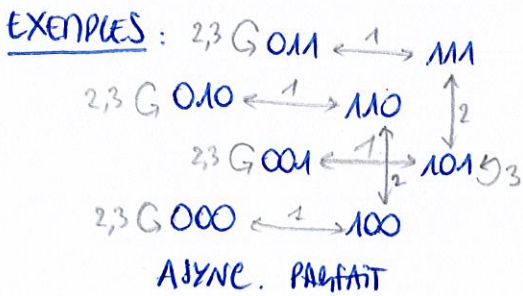 EXEMPLES : 2,3 011 1 111
2
2,3 010 1 110
2,3 001 1 101 3
2
2,3 000 1 100
ASYNC. PARFAIT